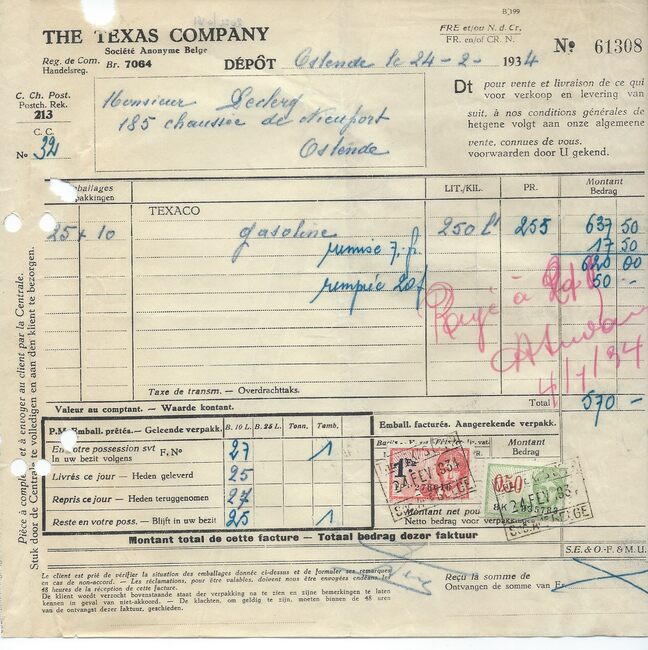 B 199
THE TEXAS COMPANY
Société Anonyme Belge
Reg. de Com.
Handelsreg. Br. 7064
DÉPÔT Ostende le 24-2-1934
FRE et/ou N. d Cr.
FR. en/of CR. N.
No 61308
C. Ch. Post.
Postch. Rek.
213
C. C.
No 32
Monsieur Leclerq
185 chaussée de Nieuport
Ostende
Dt pour vente et livraison de ce qui
voor verkoop en levering van
suit, à nos conditions générales de
hetgene volgt aan onze algemeene
vente, connues de vous.
voorwaarden door U gekend.
LIT./KIL. PR. Montant
Bedrag
TEXACO
25 + 10 gasoline 250 lt 255 637 50
remise 7.- fr. 17 50
620 00
50 -
Taxe de transm. — Overdrachttaks.
Total 570 -
Valeur au comptant. — Waarde kontant.
P.M. Emball. prêtés. — Geleende verpakk. B. 10 L. B. 25 L. Tonn. Tamb.
En votre possession svt F. No
In uw bezit volgens 27 1
Livrés ce jour — Heden geleverd 25
Repris ce jour — Heden teruggenomen 27
Reste en votre poss. — Blijft in uw bezit 25 1
Emball. facturés. Aangerekende verpakk.
Montant
Bedrag
24 FEV 934
050
24 FEV 934
Netto bedrag voor verpakkingen
Montant total de cette facture — Totaal bedrag dezer faktuur
S.E. & O.-F. & M.U.
Le client est prié de vérifier la situation des emballages donnée ci-dessus et de formuler ses remarques
en cas de non-accord. — Les réclamations, pour être valables, doivent nous être envoyées endéans les
48 heures de la réception de cette facture.
De klant wordt verzocht bovenstaande staat der verpakking na te zien en zijne bemerkingen te laten
kennen in geval van niet-akkoord. — De klachten, om geldig te zijn, moeten binnen de 48 uren
van de ontvangst dezer faktuur, geschieden.
Reçu la somme de
Ontvangen de somme van Fr.
Pièce à compléter et à envoyer au client par la Centrale.
Stuk door de Centrale te volledigen en aan den klient te bezorgen.